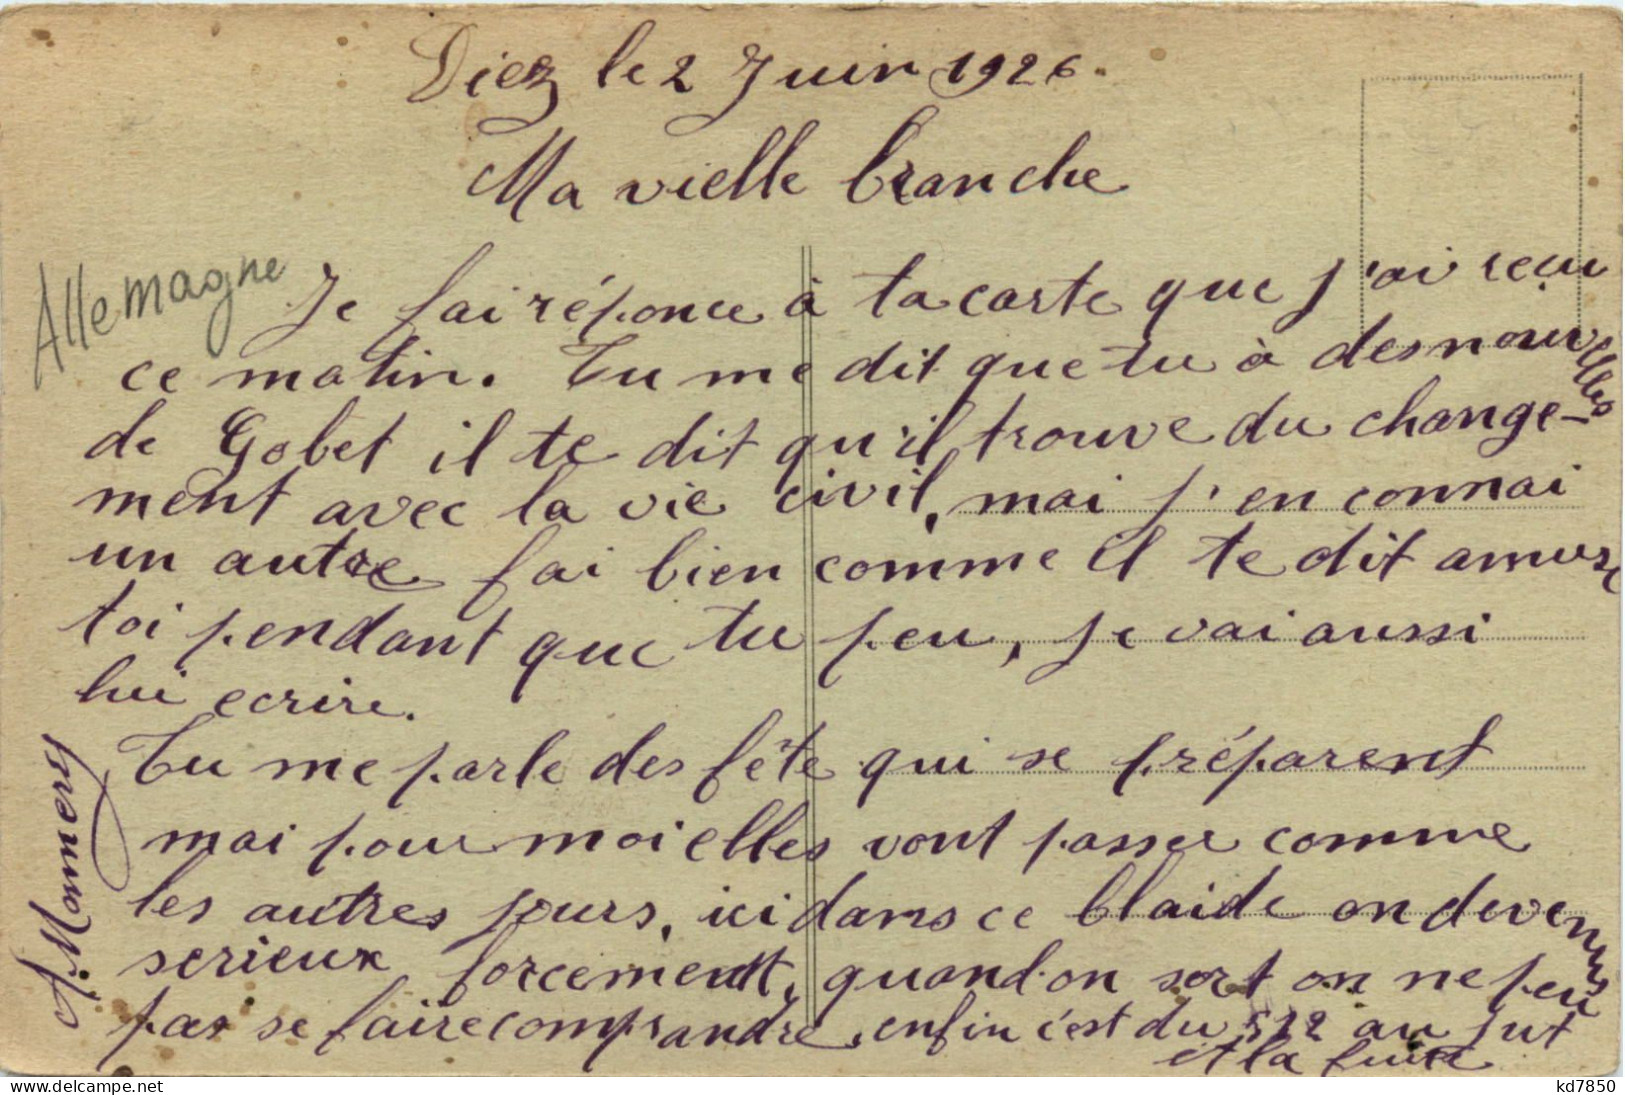 Diez le 2 Juin 1926.
Ma vielle branche
Allemagne
Je fai réponce à ta carte que j'ai reçu
ce matin. Tu me dit que tu à des nouvelles
de Gobet il te dit qu'il trouve du change-
ment avec la vie civil, mai j'en connai
un autre fai bien comme il te dit amuse
toi pendant que tu peu, je vai aussi
lui ecrire.
Tu me parle des fête qui se préparent
mai pour moi elles vont passer comme
les autres jours, ici dans ce blaide on devenus
serieux forcement, quand on sort on ne peu
pas se faire comprandre, enfin c'est du 512 au jut
et la fuite
delcampe.net
kd7850